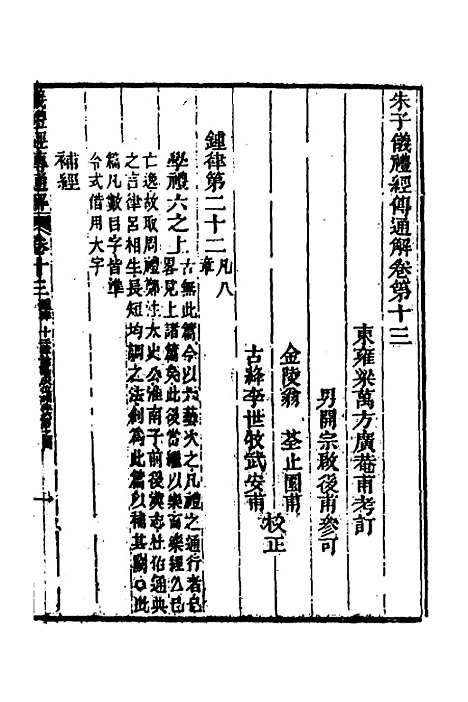 朱子儀禮經傳通解卷第十三
東雍梁萬方廣菴甫考訂
男開宗啟後甫參訂
金陵翁荃止園甫
古絳李世牧武安甫
校正
鍾律第二十二凡八章
學禮六之上
古無此篇今以六藝次之凡禮之通行者已
畧見上諸篇矣此後當繼以樂而樂經久已
亡逸故取周禮鄭注太史公淮南子前後漢志杜佑通典
之言律呂相生長短均調之法剏為此篇以補其闕○此
篇凡數目字皆準
令式借用大字
補經
儀禮經傳通解 卷十三